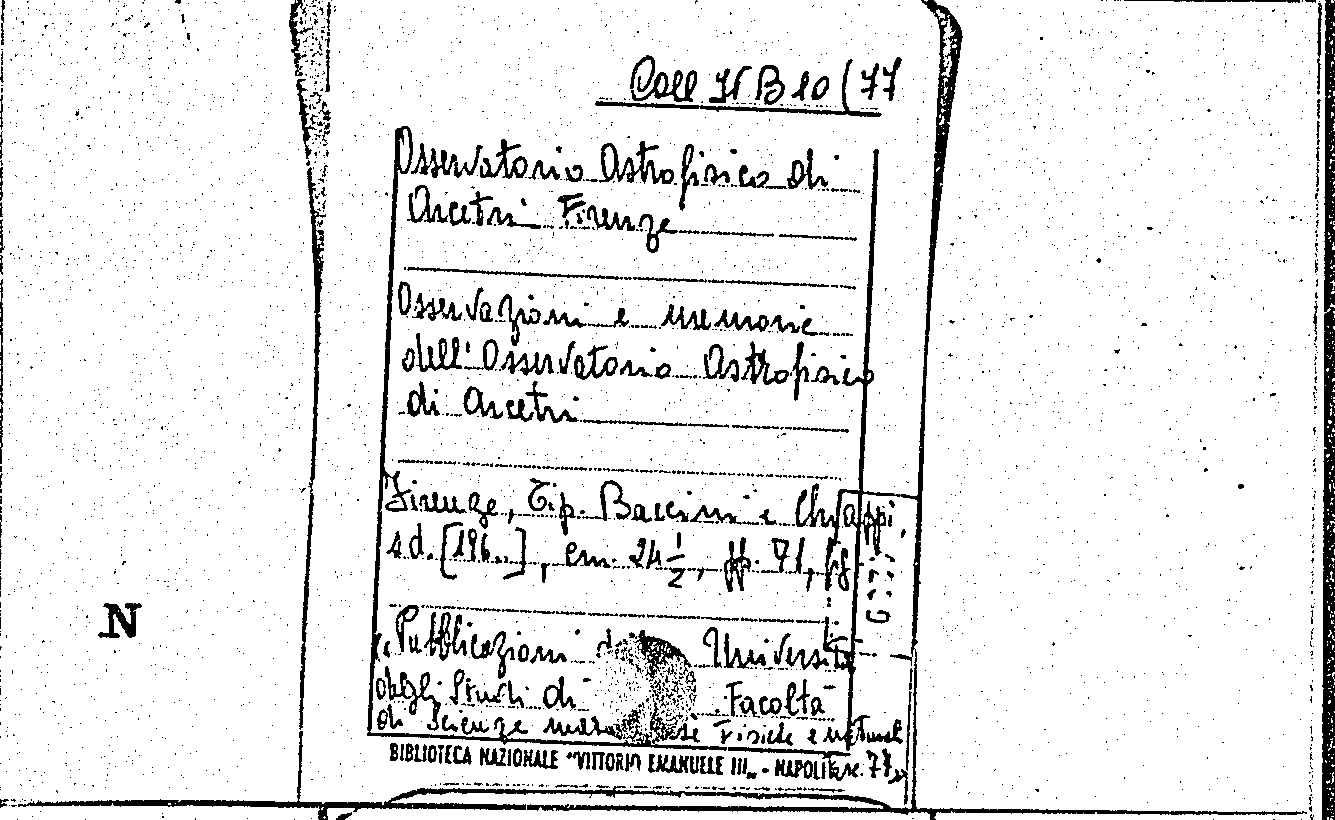 Coll It B 10 (77
Osservatorio Astrofisico di
Arcetri Firenze
Osservazioni e memorie
dell'Osservatorio Astrofisico
di Arcetri
Firenze, Tip. Baccini e Chiappi.
s.d. [196..], cm. 24 1/2, pp. 71,
N
"Pubblicazioni Università
degli Studi di Facoltà
di Scienze Fisiche e naturali
BIBLIOTECA NAZIONALE "VITTORIO EMANUELE III„ - NAPOLI Fasc. 77„